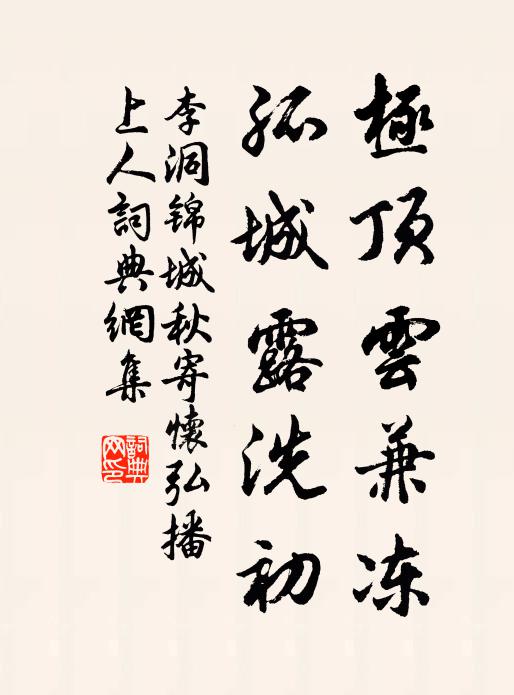 極頂雲兼冻
孤城露洗初
李洞锦城秋寄懷弘播
上人詞典網集
詞典网印